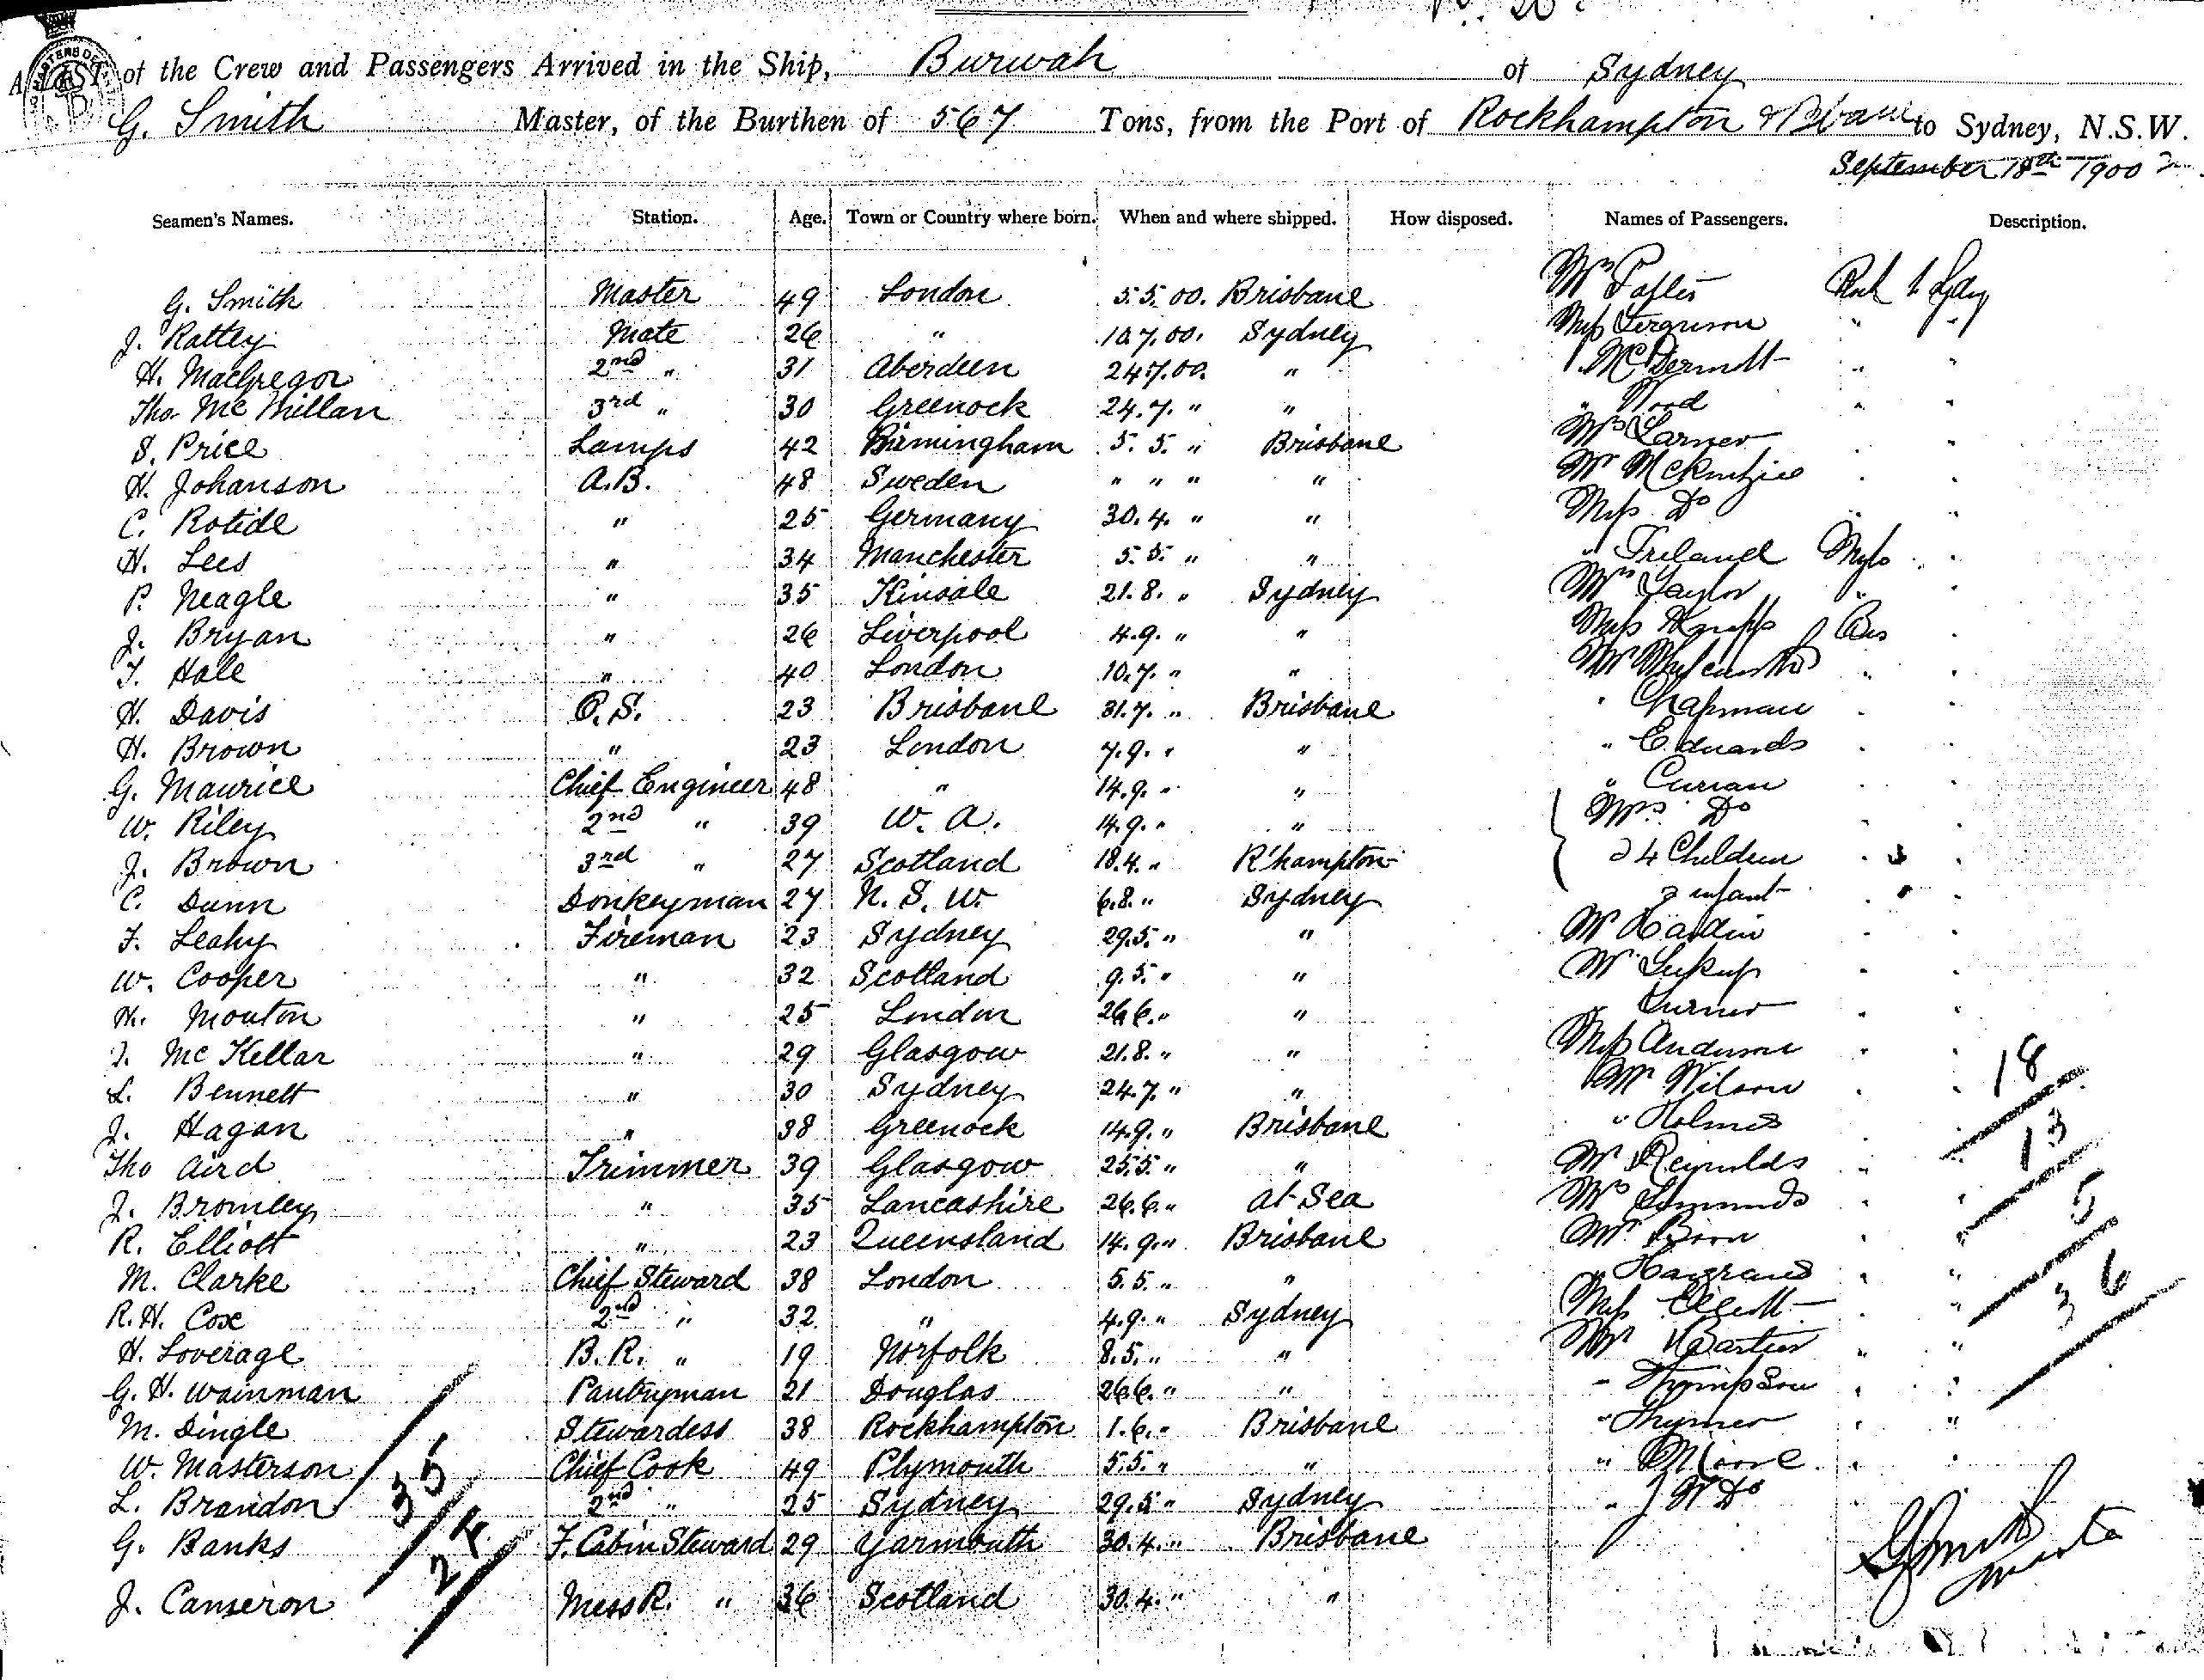 A LIST of the Crew and Passengers Arrived in the Ship, Burwah of Sydney
G. Smith Master, of the Burthen of 567 Tons, from the Port of Rockhampton & Bbane to Sydney, N.S.W.
September 18th 1900
Seamen's Names. Station. Age. Town or Country where born. When and where shipped. How disposed. Names of Passengers. Description.
G. Smith Master 49 London 5.5.00. Brisbane Mrs Rock to Sydney
J. Rattey Mate 26 " 10.7.00. Sydney Miss Ferguson " "
H. MacGregor 2nd " 31 Aberdeen 24.7.00. " " McDermott " "
Tho Mc Millan 3rd " 30 Greenock 24.7. " " " Wood " "
S. Price Lamps 42 Birmingham 5.5. " Brisbane Mrs Larner "
H. Johanson A.B. 48 Sweden " " " " Mr McKenzie " "
C. Rotide " 25 Germany 30.4. " " Miss Do " "
H. Lees " 34 Manchester 5.5. " " " Ireland "
P. Neagle " 35 Kinsale 21.8. " Sydney Mrs Taylor " "
J. Bryan " 26 Liverpool 4.9. " " Miss Knapp Bris "
T. Hale " 40 London 10.7. " " Mr " "
H. Davis O.S. 23 Brisbane 31.7. " Brisbane " Chapman " "
H. Brown " 23 London 7.9. " " " Edwards " "
G. Maurice Chief Engineer 48 " 14.9. " " " Curran " "
W. Riley 2nd " 39 W. A. 14.9. " " Mrs Do " "
J. Brown 3rd " 27 Scotland 18.4. " R'hampton & 4 Children " "
C. Dunn Donkeyman 27 N. S. W. 6.8. " Sydney & infant " "
F. Leahy Fireman 23 Sydney 29.5. " " Mr " "
W. Cooper " 32 Scotland 9.5. " " Mr " "
H. Mouton " 25 London 26.6. " " " Turner " "
J. Mc Kellar " 29 Glasgow 21.8. " " Miss Anderson " "
L. Bennett " 30 Sydney 24.7. " " Mr Wilson " " 18
J. Hagan " 38 Greenock 14.9. " Brisbane " Holmes " " 13
Tho Aird Trimmer 39 Glasgow 25.5. " " Mr Reynolds " "
J. Bromley " 35 Lancashire 26.6. " at Sea Mrs Simmonds " " 5
R. Elliott " 23 Queensland 14.9. " Brisbane Mr " "
M. Clarke Chief Steward 38 London 5.5. " " " Hargraves " " 36
R.H. Cox 2nd " 32 " 4.9. " Sydney Miss Elliott " "
H. Loverage B.R. " 19 Norfolk 8.5. " " Mr " "
G. H. Wainman Pantryman 21 Douglas 26.6. " " " Thompson " "
M. Dingle Stewardess 38 Rockhampton 1.6. " Brisbane " " "
W. Masterson Chief Cook 49 Plymouth 5.5. " " " Moore " "
L. Brandon 35 2nd " 25 Sydney 29.5. " Sydney " J W Do "
G. Banks 24 F. Cabin Steward 29 Yarmouth 30.4. " Brisbane G Smith
J. Cameron Mess R. " 36 Scotland 30.4. " " Master